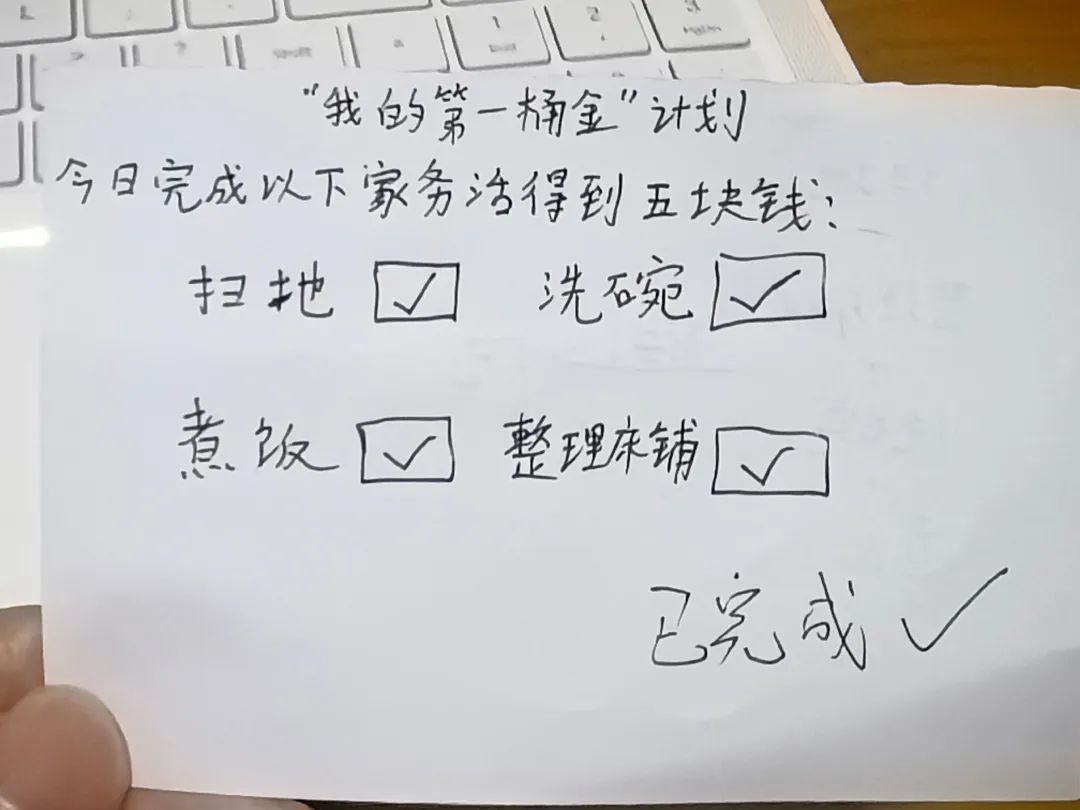 “我的第一桶金”计划
今日完成以下家务活得到五块钱：
扫地 ☑ 洗碗 ☑
煮饭 ☑ 整理床铺 ☑
已完成 ✓